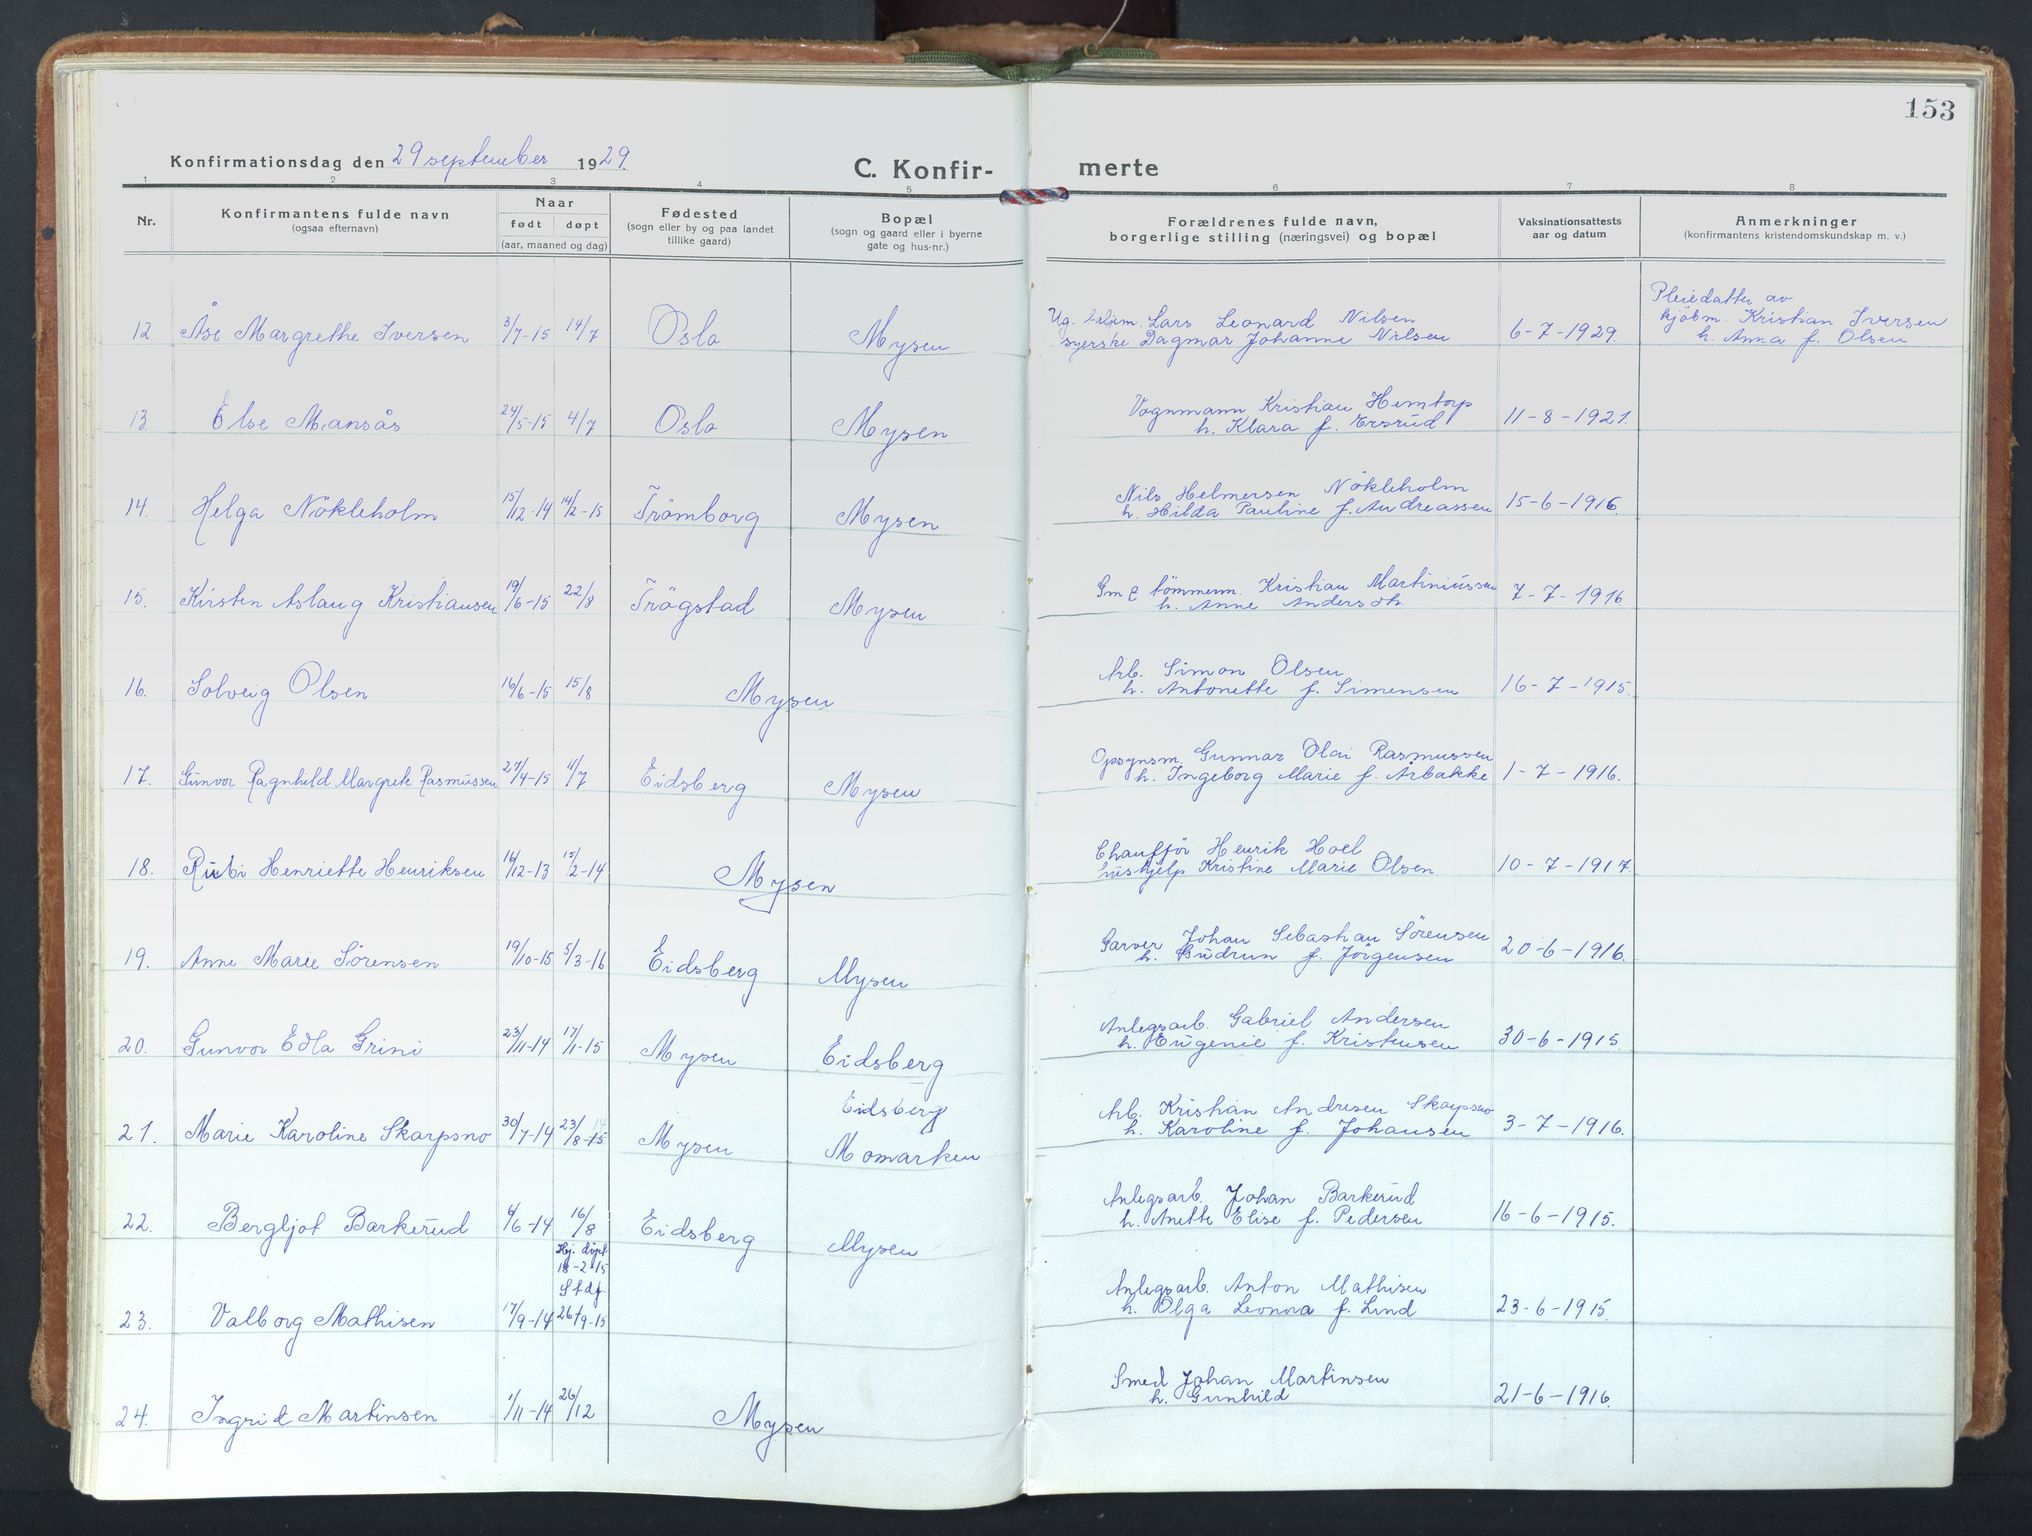 153
Konfirmationsdag den 29 september 1929.
C. Konfir-
merte
1 2 3 4 5 6 7 8
Nr.
Konfirmantens fulde navn
(ogsaa efternavn)
Naar
født døpt
(aar, maaned og dag)
Fødested
(sogn eller by og paa landet
tillike gaard)
Bopæl
(sogn og gaard eller i byerne
gate og hus-nr.)
Forældrenes fulde navn,
borgerlige stilling (næringsvei) og bopæl
Vaksinationsattests
aar og datum
Anmerkninger
(konfirmantens kristendomskundskap m. v.)
12 Åse Margrethe Iversen 3/7-15 14/7 Oslo Mysen
Ug. Lars Leonard Nilsen
syerske Dagmar Johanne Nilsen 6-7-1929.
Pleiedatter av
kjöbm. Kristian Iversen
h. Anna f. Olsen
13. Else Mansås 24/5-15 4/7 Oslo Mysen
Vognmann Kristian Hemtorp
h. Klara f. Ersrud 11-8-1921.
14. Helga Nökleholm 15/12-14 14/2-15 Trömborg Mysen
Nils Helmersen Nökleholm
h. Hilda Pauline f. Andreassen 15-6-1916.
15. Kirsten Aslaug Kristiansen 19/6-15 22/8 Trögstad Mysen
Gm & tömmerm. Kristian Martiniussen
h. Anne Andersdh. 7-7-1916
16. Solveig Olsen 16/6-15 15/8 Mysen
Arb. Simon Olsen
h. Antonette f. Simensen 16-7-1915.
17. Gunvor Ragnhild Margrete Rasmussen 27/4-15 11/7 Eidsberg Mysen
Opsynsm. Gunnar Olai Rasmussen
h. Ingeborg Marie f. Årbakke 1-7-1916.
18. Rubi Henriette Henriksen 16/12-13 15/2-14 Mysen
Chauffør Henrik Hoel
hushjelp Kristine Marie Olsen 10-7-1917.
19. Anne Marie Sørensen 19/10-15 5/3-16 Eidsberg Mysen
Garver Johan Sebastian Sørensen
h. Gudrun f. Jörgensen 20-6-1916.
20. Gunvor Edla Grini 23/11-14 17/1-15 Mysen Eidsberg
Anlegsarb. Gabriel Andersen
h. Eugenie f. Kristensen 30-6-1915.
21. Marie Karoline Skarpsno 30/7-14 23/8-15 14 Mysen Eidsberg
Momarken
Arb. Kristian Andresen Skarpsno
h. Karoline f. Johansen 3-7-1916.
22. Bergljot Barkerud 4/6-14 16/8 Eidsberg Mysen
Anlegsarb. Johan Barkerud
h. Anette Elise f. Pedersen 16-6-1915.
Hj. döpt
18-2-15
Stdf.
23. Valborg Mathisen 17/9-14 26/9-15
Anlegsarb. Anton Mathisen
h. Olga Leonora f. Lind 23-6-1915.
24. Ingrid Martinsen 1/11-14 26/12 Mysen
Smed Johan Martinsen
h. Gunhild 21-6-1916.